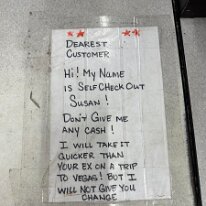 Dearest
Customer
Hi! My Name
is Self Check Out
Susan!
Don't Give me
any cash!
I will take it
quicker than
your ex on a trip
to Vegas! But I
will not give you
change